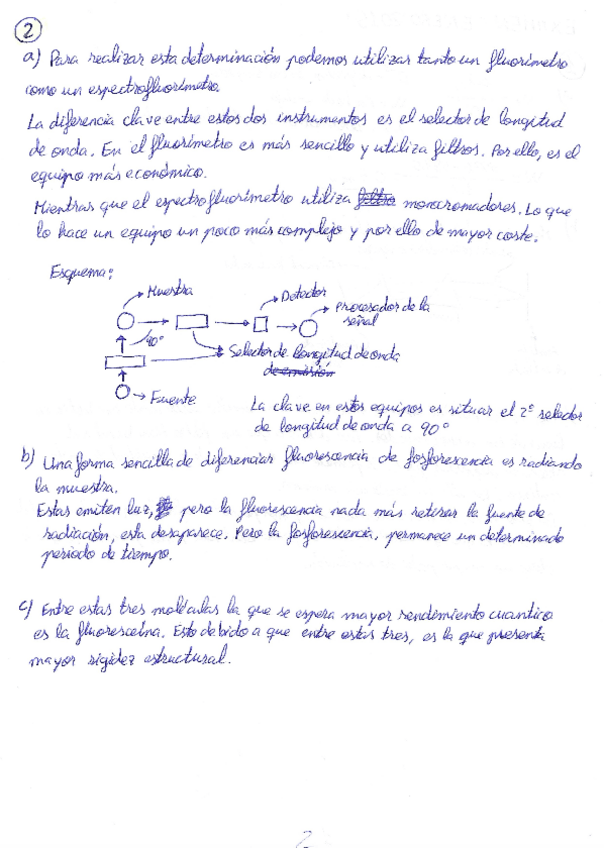 2
a) Para realizar esta determinación podemos utilizar tanto un fluorímetro
como un espectrofluorímetro.
La diferencia clave entre estos dos instrumentos es el selector de longitud
de onda. En el fluorímetro es más sencillo y utiliza filtros. Por ello, es el
equipo más económico.
Mientras que el espectrofluorímetro utiliza filtro monocromadores. Lo que
lo hace un equipo un poco más complejo y por ello de mayor coste.
Esquema:
Muestra
Detector
Procesador de la
señal
90°
Selector de longitud de onda
de emisión
Fuente
La clave en estos equipos es situar el 2º selector
de longitud de onda a 90°
b) Una forma sencilla de diferenciar fluorescencia de fosforescencia es radiando
la muestra.
Estas emiten luz, pero la fluorescencia nada más retirar la fuente de
radiación, esta desaparece. Pero la fosforescencia, permanece un determinado
periodo de tiempo.
c) Entre estas tres moléculas la que se espera mayor rendimiento cuantico
es la fluoresceína. Esto debido a que entre estas tres, es la que presenta
mayor rigidez estructural.
2